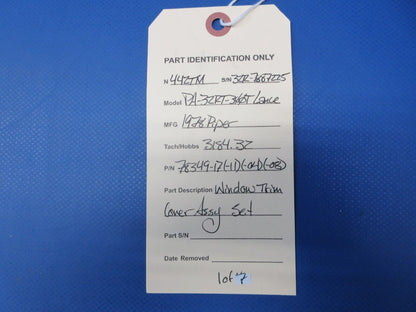 PART IDENTIFICATION ONLY
N 442TM S/N 32R-7887225
Model PA-32RT-300T Lance
MFG 1978 Piper
Tach/Hobbs 3184.32
P/N 78349-17(-11)(-04)(-03)
Part Description Window Trim
Cover Assy Set
Part S/N
Date Removed
1 of 7